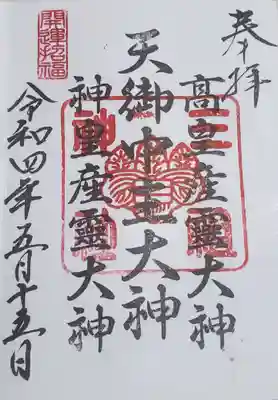 奉拝
高皇産靈大神
天御中主大神
神皇産靈大神
令和四年五月十五日
開運招福